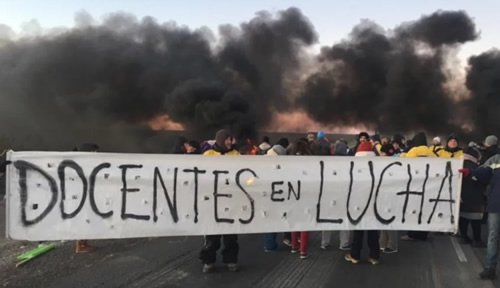 DOCENTES EN LUCHA